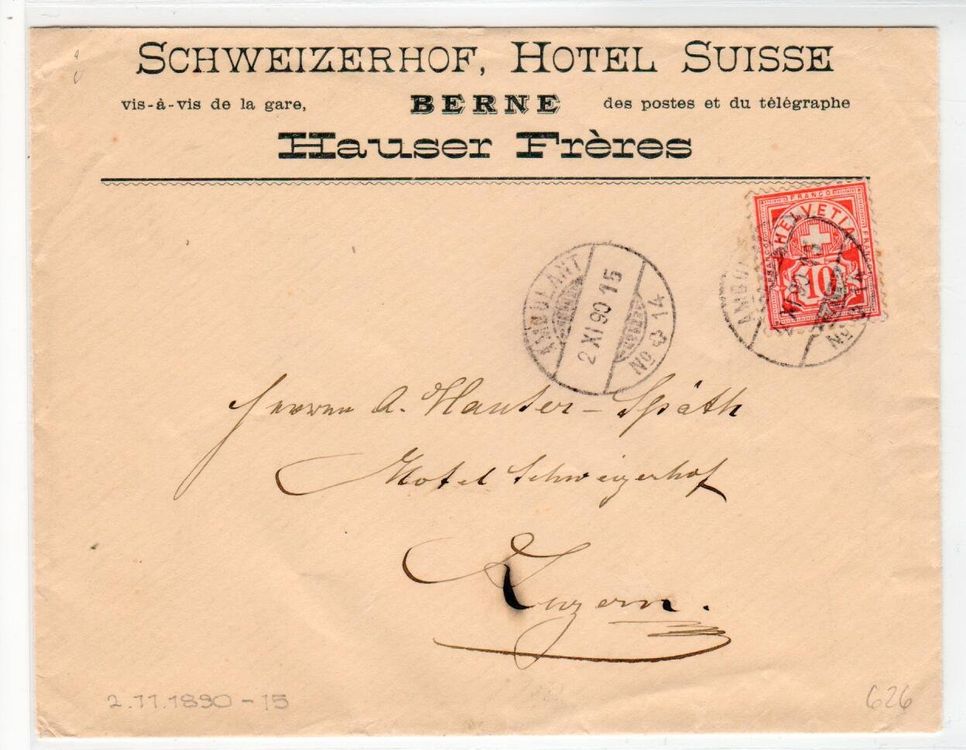 SCHWEIZERHOF, HOTEL SUISSE
vis-à-vis de la gare, BERNE des postes et du télégraphe
Hauser Frères
FRANCO
HELVETIA
10
AMBULANT
2 XI 90 15
No 14
AMBULANT
2 XI 90 15
No 14
Herren A. Hauser-Späth
Hotel Schweizerhof
Luzern.
2.11.1890-15
626